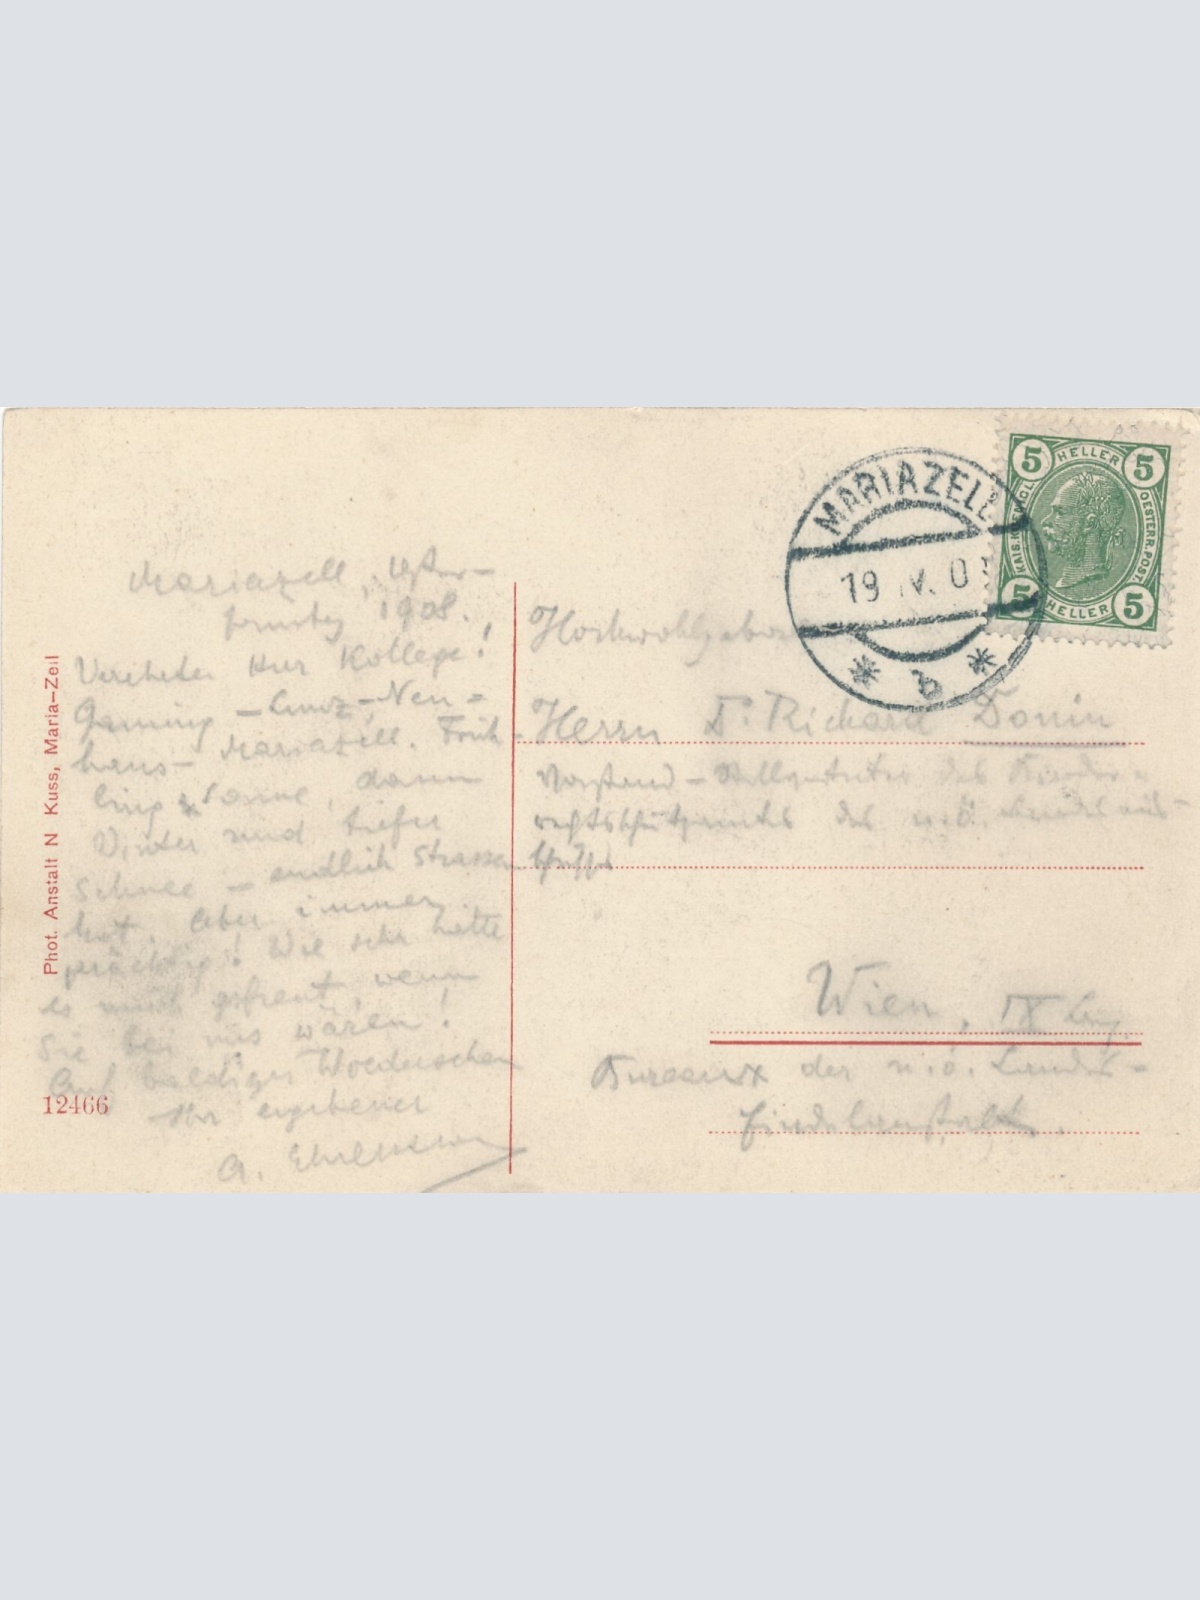 Mariazell, Oster-
sonntag 1908.
Verehrter Herr Kollege!
Gaming - Lunz - Neu=
haus - Mariazell. Früh-
ling & Sonne, dann
Winter und tiefer
Schnee - endlich Strassen
kot. Aber immer
prächtig! Wie sehr hätte
es mich gefreut, wenn
Sie bei uns wären!
Auf baldiges Wiedersehen
Ihr ergebener
A.
Phot. Anstalt N Kuss, Maria-Zell
12466
MARIAZELL
19 IV. 0
b
5 HELLER 5
KAIS. KÖNIGL. OESTERR. POST.
5 HELLER 5
Hochwohlgeboren
Herrn Dr. Richard Donin
Vorstand-Stellvertreter des Kinder=
rechtsschutzamtes des n.ö. Landesaus-
Wien, IX
Bureaux der n.ö. Landes-
Findelanstalt.